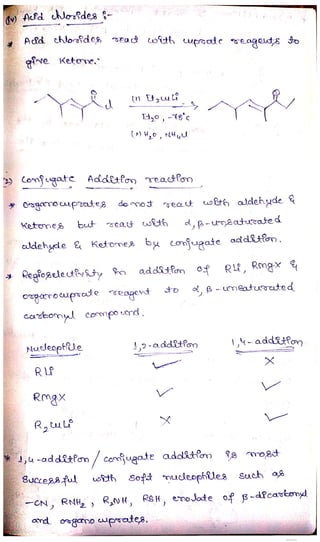 (iv) Acid chlorides :-
* Acid chlorides react with cuprate reagents to
give Ketone.
O
Cl
(i) Et₂CuLi
Et₂O, -78°C
(ii) H₂O, NH₄Cl
O
2) Conjugate Addition reaction
* Organocuprates do not react with aldehyde &
Ketones but react with α,β-unsaturated
aldehyde & Ketones by conjugate addition.
* Regioselectivity in addition of RLi, RMgx &
organocuprate reagent to α,β-unsaturated
carbonyl compound.
Nucleophile 1,2-addition 1,4-addition
RLi ✓ ×
RMgx ✓ ✓
R₂CuLi × ✓
* 1,4-addition / conjugate addition is most
successful with soft nucleophiles such as
-CN, RNH₂, R₂NH, RSH, enolate of β-dicarbonyl
and organo cuprates.